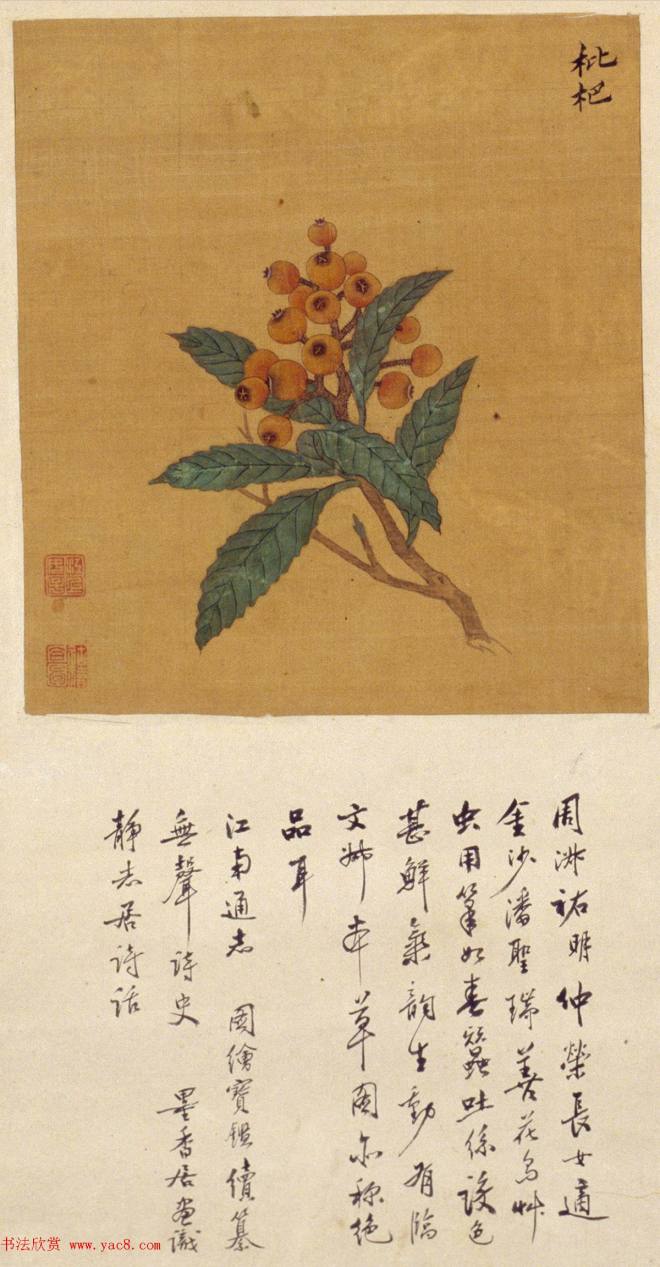 枇杷
周淑祐明仲榮長女適
金沙潘聖瑞善花鳥艸
虫用筆如春蠶吐絲設色
甚鮮氣韻生動有臨
文淑本草圖亦稱絕
品耳
江南通志 圖繪寶鑑續纂
無聲詩史 墨香居畫識
靜志居詩話
书法欣赏 www.yac8.com